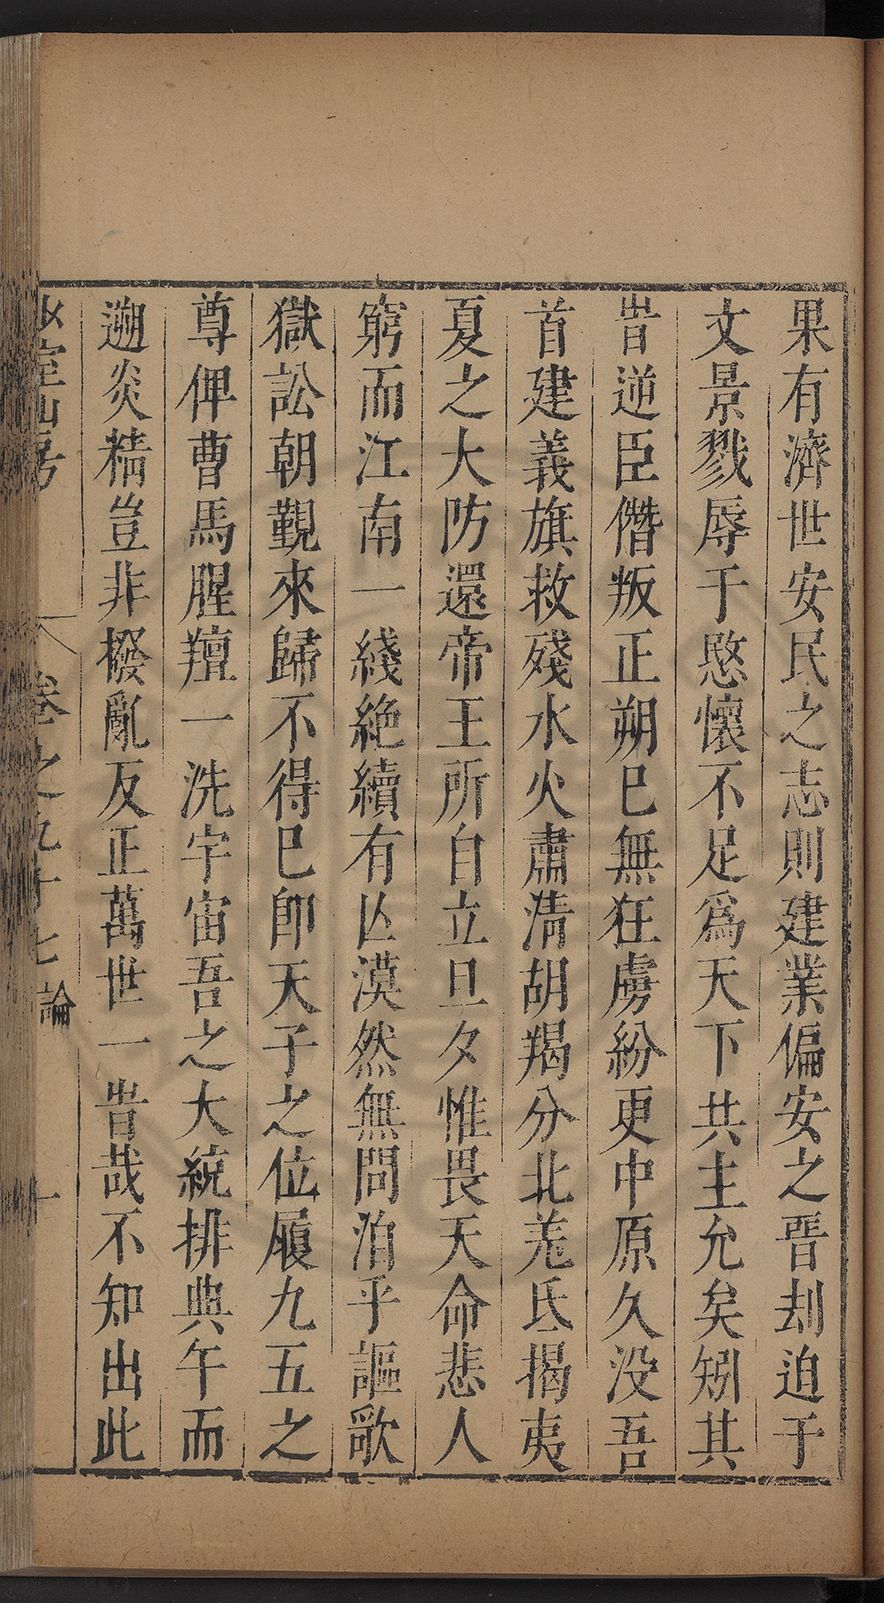 果有濟世安民之志則建業偏安之晉刦迫于
文景戮辱于愍懷不足爲天下共主允矣矧其
旹逆臣僭叛正朔巳無狂虜紛更中原久没吾
首建義旗救殘水火肅清胡羯分北羗氐揭夷
夏之大防還帝王所自立旦夕惟畏天命悲人
窮而江南一綫絶續有亾漠然無問洎乎謳歌
獄訟朝覲來歸不得巳卽天子之位履九五之
尊俾曹馬腥羶一洗宇宙吾之大統排典午而
遡炎精豈非撥亂反正萬世一旹哉不知出此
少室山房 卷之九十七 論 十